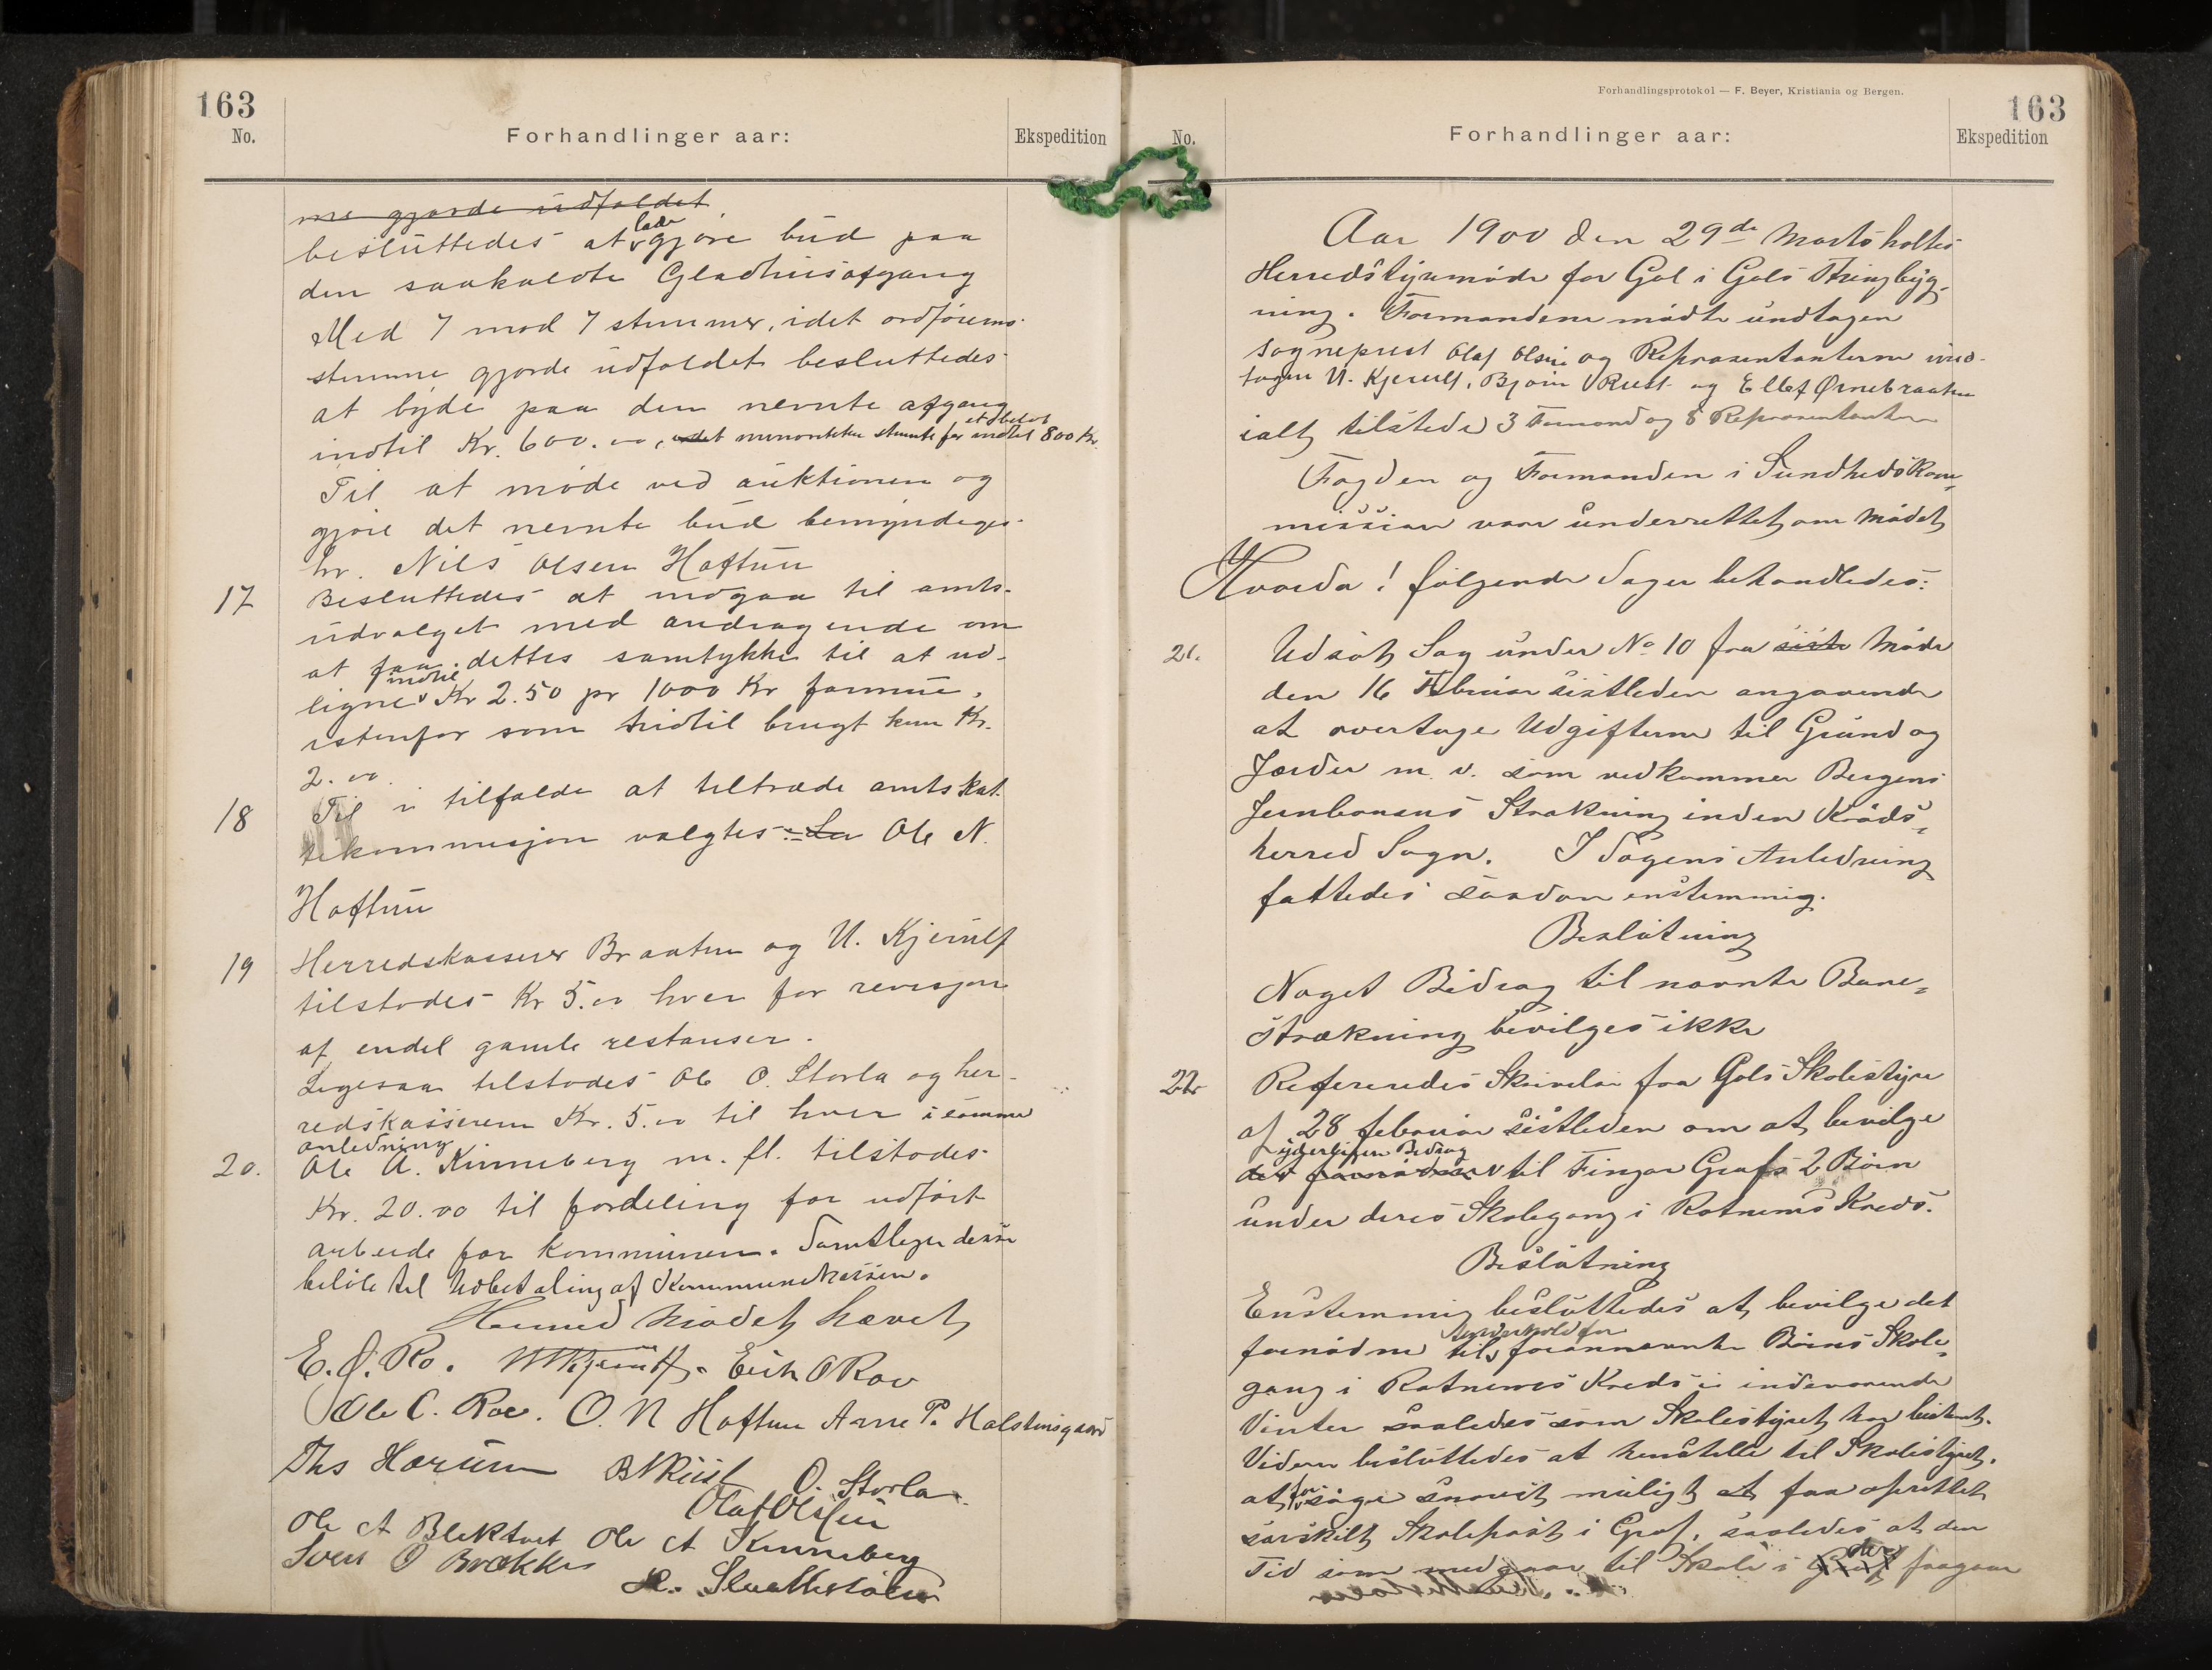 163
No.
Forhandlinger aar:
Ekspedition
ne gjorde udfaldet
besluttedes at lade gjøre bud paa
den saakaldte Gladhusafgang
Med 7 mod 7 stemmer, idet ordførerns
stemme gjorde udfaldet besluttedes
at byde paa den nevnte afgang
indtil Kr. 600.00, idet minoriteten stemte for et beløb indtil 800 Kr.
Til at møde ved auktionen og
gjøre det nevnte bud bemyndiges
hr. Nils Olsen Hoftun
17 Besluttedes at indgaa til amts-
udvalget med andragende om
at faa dettes samtykke til at ud-
ligne indtil Kr 2.50 pr 1000 Kr formue,
istenfor som hidtil brugt kun Kr.
2.00
18 Til i tilfælde at tiltræde amtskat-
tekommisjon valgtes: Ole N.
Hoftun
19 Herredskasserer Braaten og U. Kjerulf
tilstodes Kr 5.00 hver for revisjon
af endel gamle restanser.
Ligesaa tilstodes Ole O. Storla og her-
redskassereren Kr. 5.00 til hver i samme
anledning
20. Ole A. Kinneberg m. fl. tilstodes
Kr. 20.00 til fordeling for udført
arbeide for kommunen. Samtlige disse
beløb til Udbetaling af Kommunekassen.
Hermed Mødet hævet
E. O. Ro. U Kjerulf. Erik O Roo
Ole C. Roe. O. N Hoftun Arne P. Halstensgaard
Ths Hærum B N Rust O. Storla
Olaf Olssøn
Ole A Blektvet Ole A Kinneberg
Sven O Brække
H. Slaattestølen
Forhandlingsprotokol — F. Beyer, Kristiania og Bergen.
163
No.
Forhandlinger aar:
Ekspedition
Aar 1900 den 29de Marts holtes
Herredstyremøde for Gol i Gols Thingbyg-
ning. Formændene mødte undtagen
sogneprest Olaf Olsen og Repræsentanterne und-
tagen U. Kjerulf, Bjørn Rust og Ellef Ørnebraaten
ialt tilstede 3 Formænd og 8 Repræsentanter
Fogden og Formanden i Sundhedskom-
missionen var underrettet om Mødet
Hvorda! følgende Sager behandledes:
21. Udsat Sag under No 10 fra siste Møde
den 16 Februar sistleden angaaende
at overtage Udgifterne til Grund og
Jorder m. v. som vedkommer Bergens
Jernbanens Strækning inden Krøds-
herred Sogn. I Sagens Anledning
fattedes saadan enstemmig.
Beslutning
Noget Bidrag til nævnte Bane-
strækning bevilges ikke
22 Refereredes Skrivelse fra Gols Skolestyre
af 28 februar sistleden om at bevilge
yderligere Bidrag
det fornødne til Fingar Grøfs 2 Børn
under deres Skolegang i Rotnems Kreds.
Beslutning
Enstemmig besluttedes at bevilge det
fornødne til Underhold for forannævnte Børns Skole-
gang i Rotnems Kreds i indeværende
Vinter saaledes som Skolestyret har bestemt.
Videre besluttedes at henstille til Skolestyret.
at forsøge snarest muligt at faa oprettet
særskilt Skolepost i Grøf, saaledes at den
Tid som medgaar til Skole i fragaar